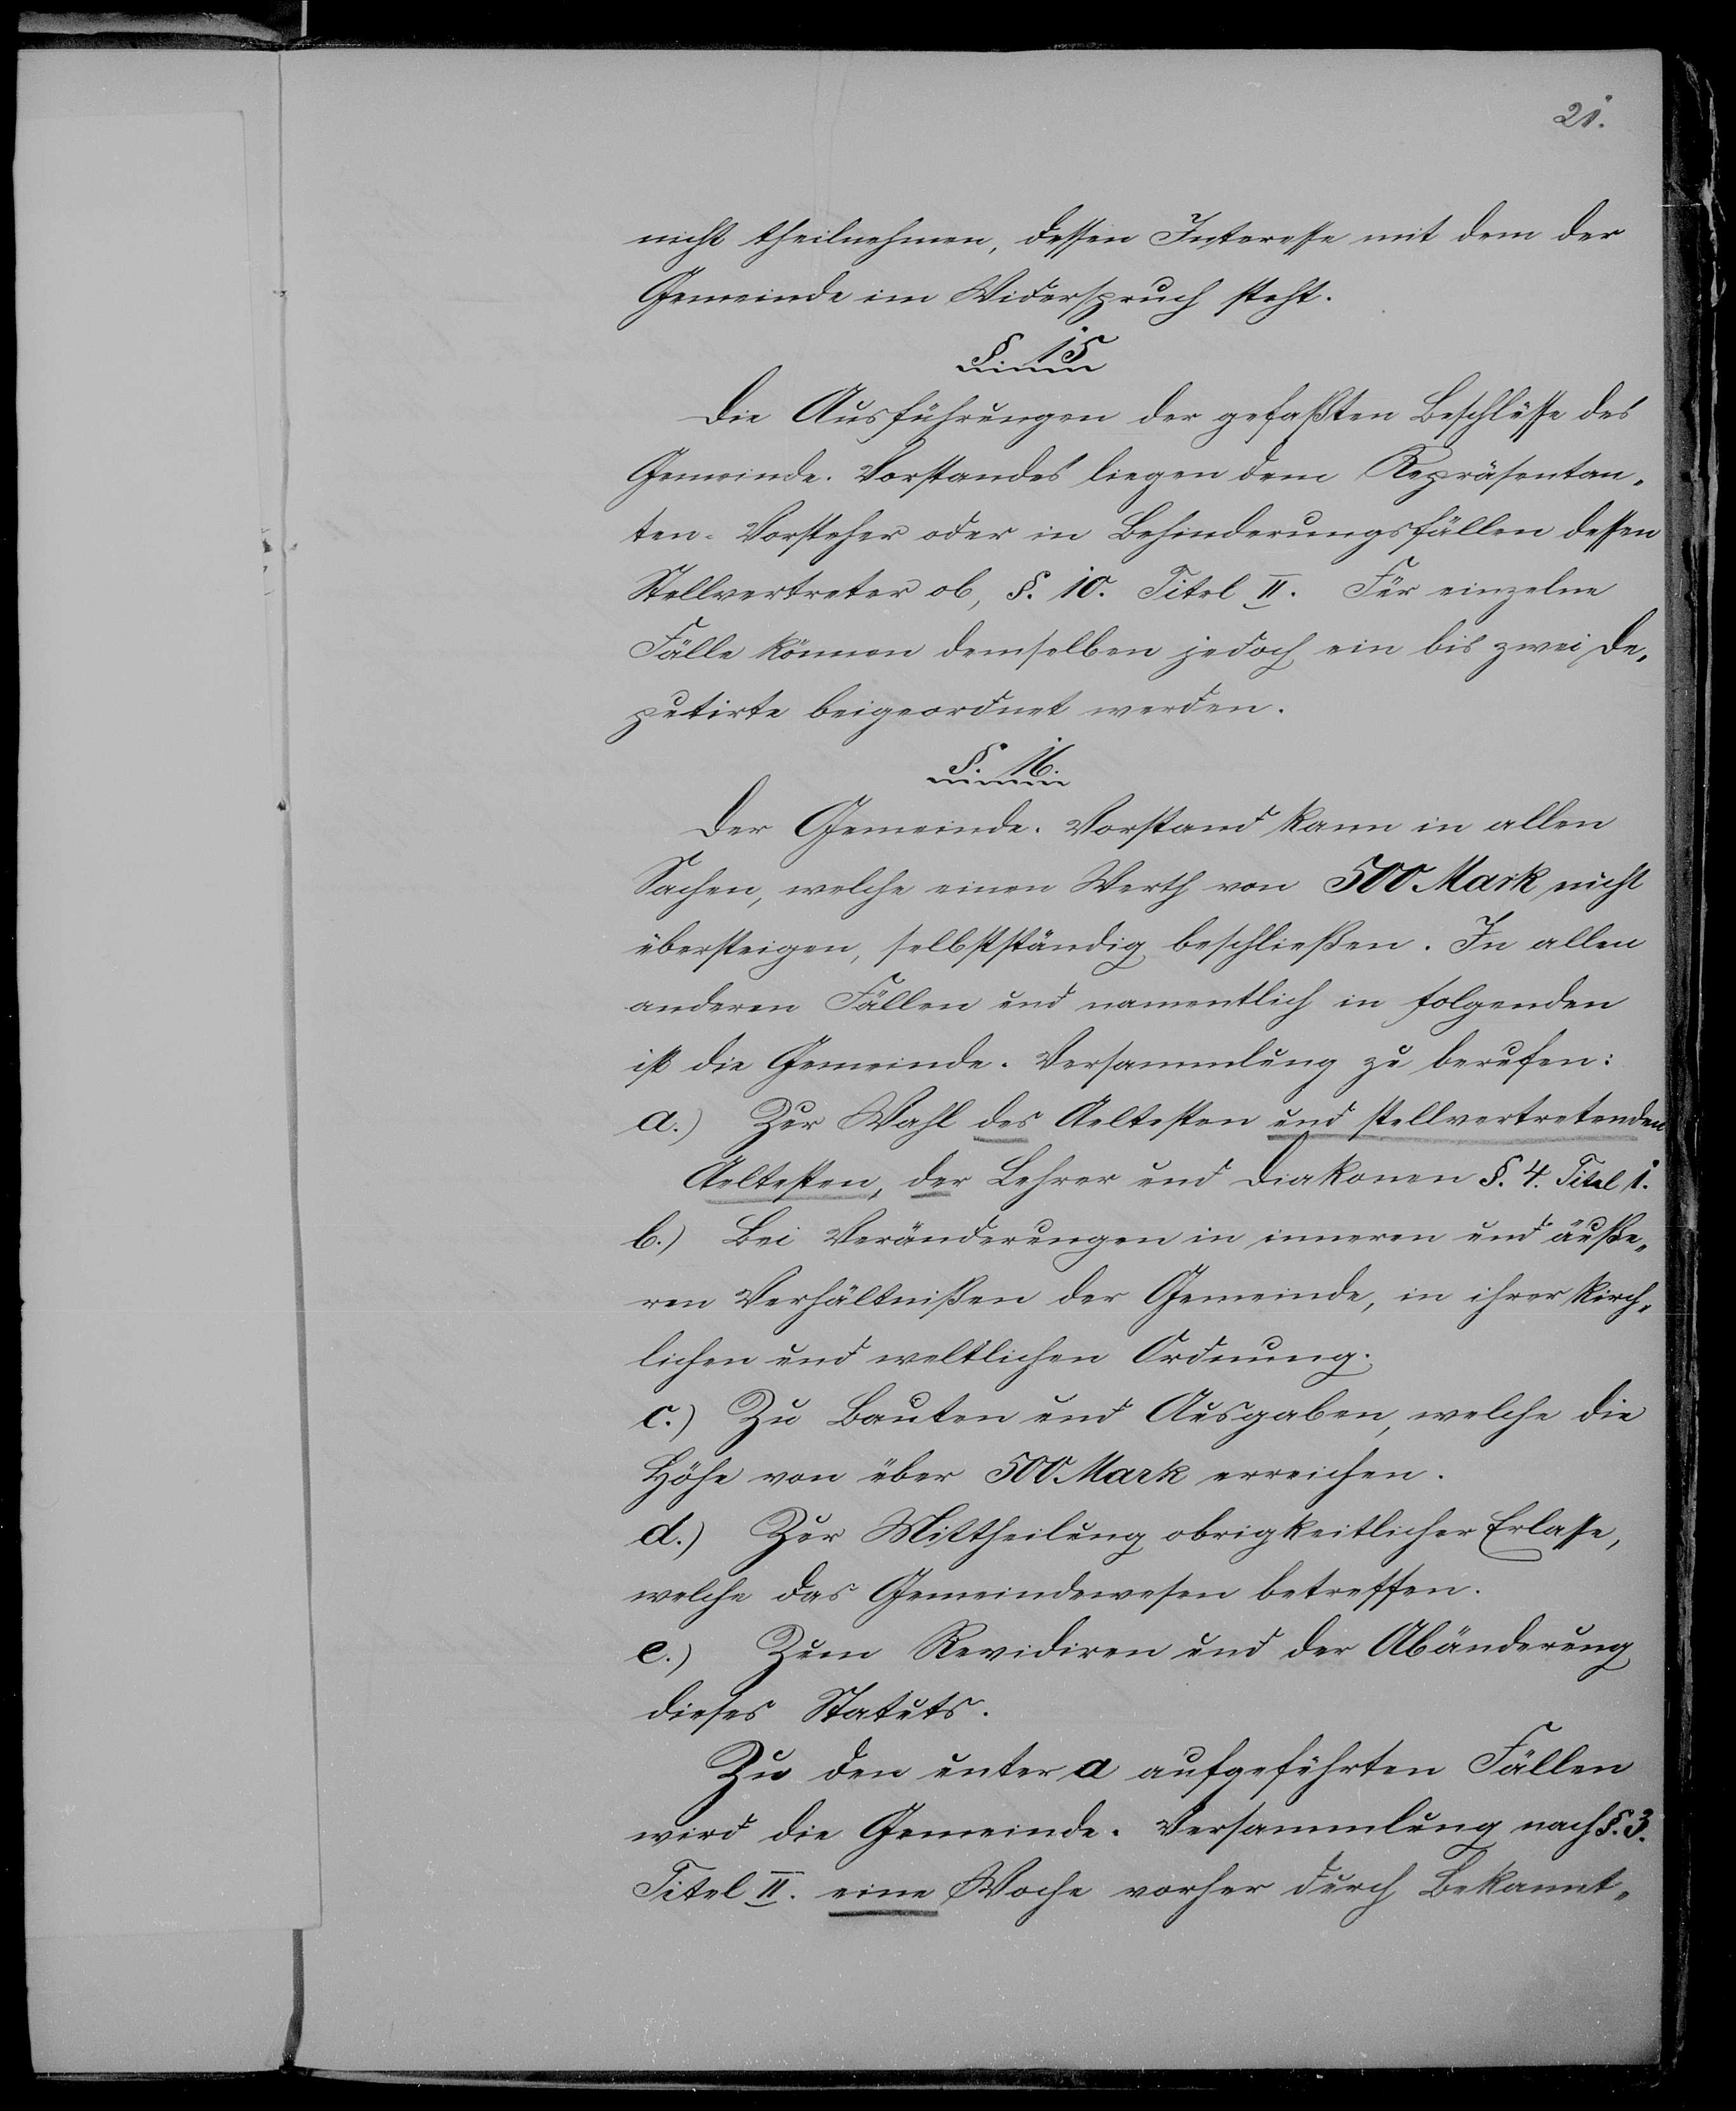 21.
nicht theilnehmen, dessen Interesse mit dem der
Gemeinde im Widerspruch steht.
§. 15
Die Ausführungen der gefaßten Beschlüsse des
Gemeinde-Vorstandes liegen dem Repräsentan-
ten-Vorsteher oder in Behinderungsfällen dessen
Stellvertreter ob, §. 10. Titel II. Für einzelne
Fälle können demselben jedoch ein bis zwei De-
putirte beigeordnet werden.
§. 16.
Der Gemeinde-Vorstand kann in allen
Sachen, welche einen Werth von 500 Mark nicht
übersteigen, selbstständig beschließen. In allen
anderen Fällen und namentlich in folgenden
ist die Gemeinde-Versammlung zu berufen:
a.) Zur Wahl des Aeltesten und stellvertretenden
Aeltesten, der Lehrer und Diakonen §. 4. Titel 1.
b.) Bei Veränderungen in inneren und äuße-
ren Verhältnißen der Gemeinde, in ihrer kirch-
lichen und weltlichen Ordnung.
c.) Zu Bauten und Ausgaben, welche die
Höhe von über 500 Mark erreichen.
d.) Zur Mittheilung obrigkeitlicher Erlasse,
welche das Gemeindewesen betreffen.
e.) Zum Revidiren und der Abänderung
dieses Statuts.
Zu den unter a aufgeführten Fällen
wird die Gemeinde-Versammlung nach §. 3.
Titel II. eine Woche vorher durch Bekannt-